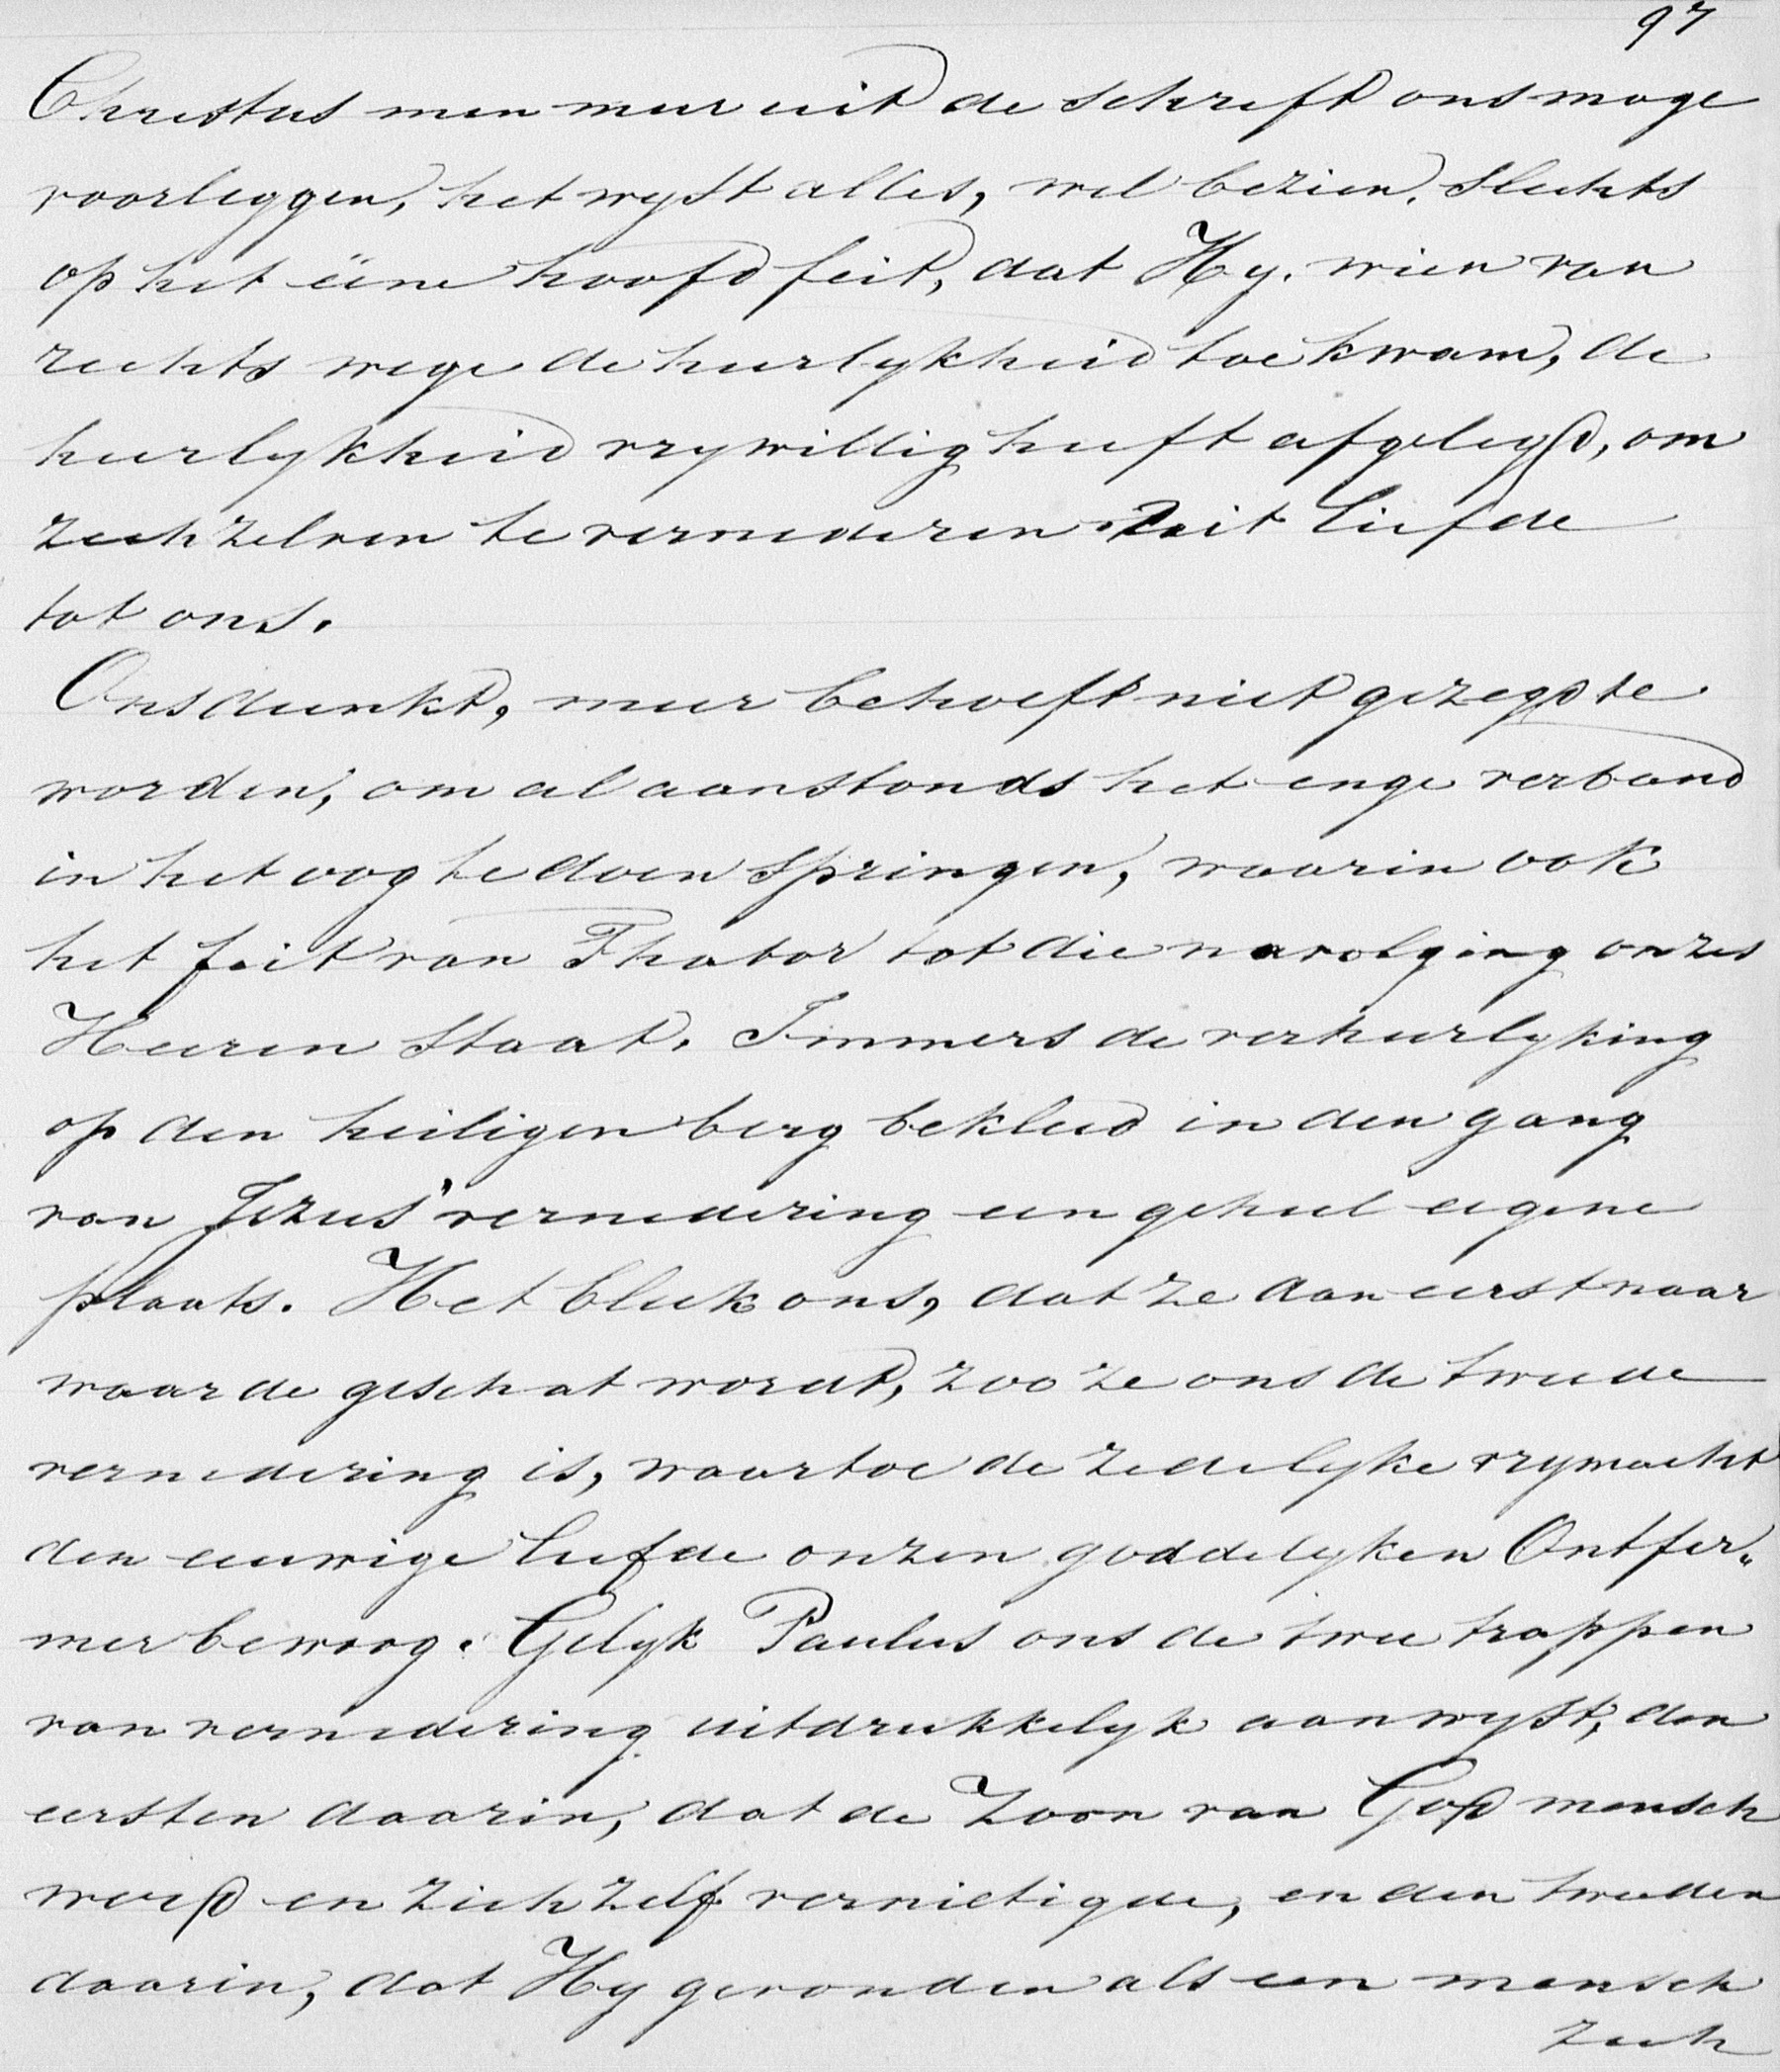 97
Christus men meer uit de schrift ons moge
voorleggen, het wyst alles, wel bezien, slechts
op het ééne hoofdfeit, dat Hy, wien van
rechts wege de heerlykheid toekwam, de
heerlykheid vrywillig heeft afgelegd, om
zich zelven te vernederen uit liefde
tot ons.
Ons dunkt, meer behoeft niet gezegd te
worden, om al aanstonds het enge verband
in het oog te doen springen, waarin ook
het feit van Thabor tot die navolging onzes
Heeren staat. Immers de verheerlyking
op den heiligen berg bekleed in den gang
van Jezus' vernedering een geheel eigene
plaats. Het bleek ons, dat ze dan eerst naar
waarde geschat wordt, zoo ze ons de tweede
vernedering is, waartoe de zedelyke vrymacht
den eeuwige liefde onzen goddelyken Ontfer„
mer bewoog. Gelyk Paulus ons de twee trappen
van vernedering uitdrukkelyk aanwyst, den
eersten daarin, dat de Zoon van God mensch
werd en zich zelf vernietigde, en den tweeden
daarin, dat Hy gevonden als een mensch
zich